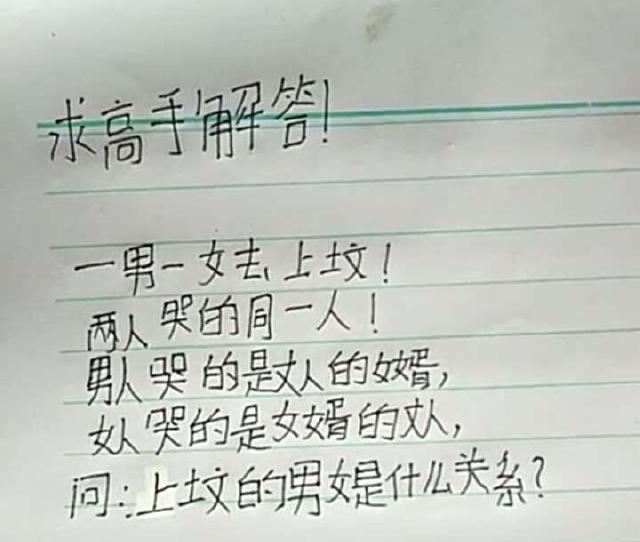 求高手解答!
一男一女去上坟!
两人哭的同一人!
男人哭的是丈人的女婿,
女人哭的是女婿的丈人,
问:上坟的男女是什么关系?